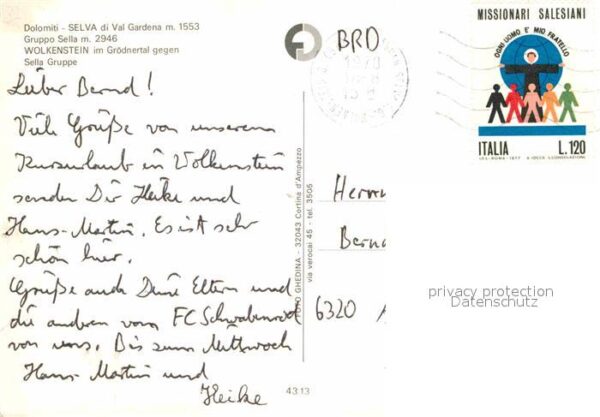 Dolomiti - SELVA di Val Gardena m. 1553
Gruppo Sella m. 2946
WOLKENSTEIN im Grödnertal gegen
Sella Gruppe
Lieber Bernd!
Viele Grüße von unserem
Kurzurlaub in Wolkenstein
senden Dir Heike und
Hans-Martin. Es ist sehr
schön hier.
Grüße auch Deine Eltern und
die anderen vom FC Schwabenrod
von uns. Bis zum Mittwoch
Hans-Martin und
Heike
4313
FOTO GHEDINA - 32043 Cortina d'Ampezzo
via verocai 45 - tel. 3506
BRD
Herrn
Bernd
6320
MISSIONARI SALESIANI
OGNI UOMO E' MIO FRATELLO
ITALIA L.120
privacy protection
Datenschutz